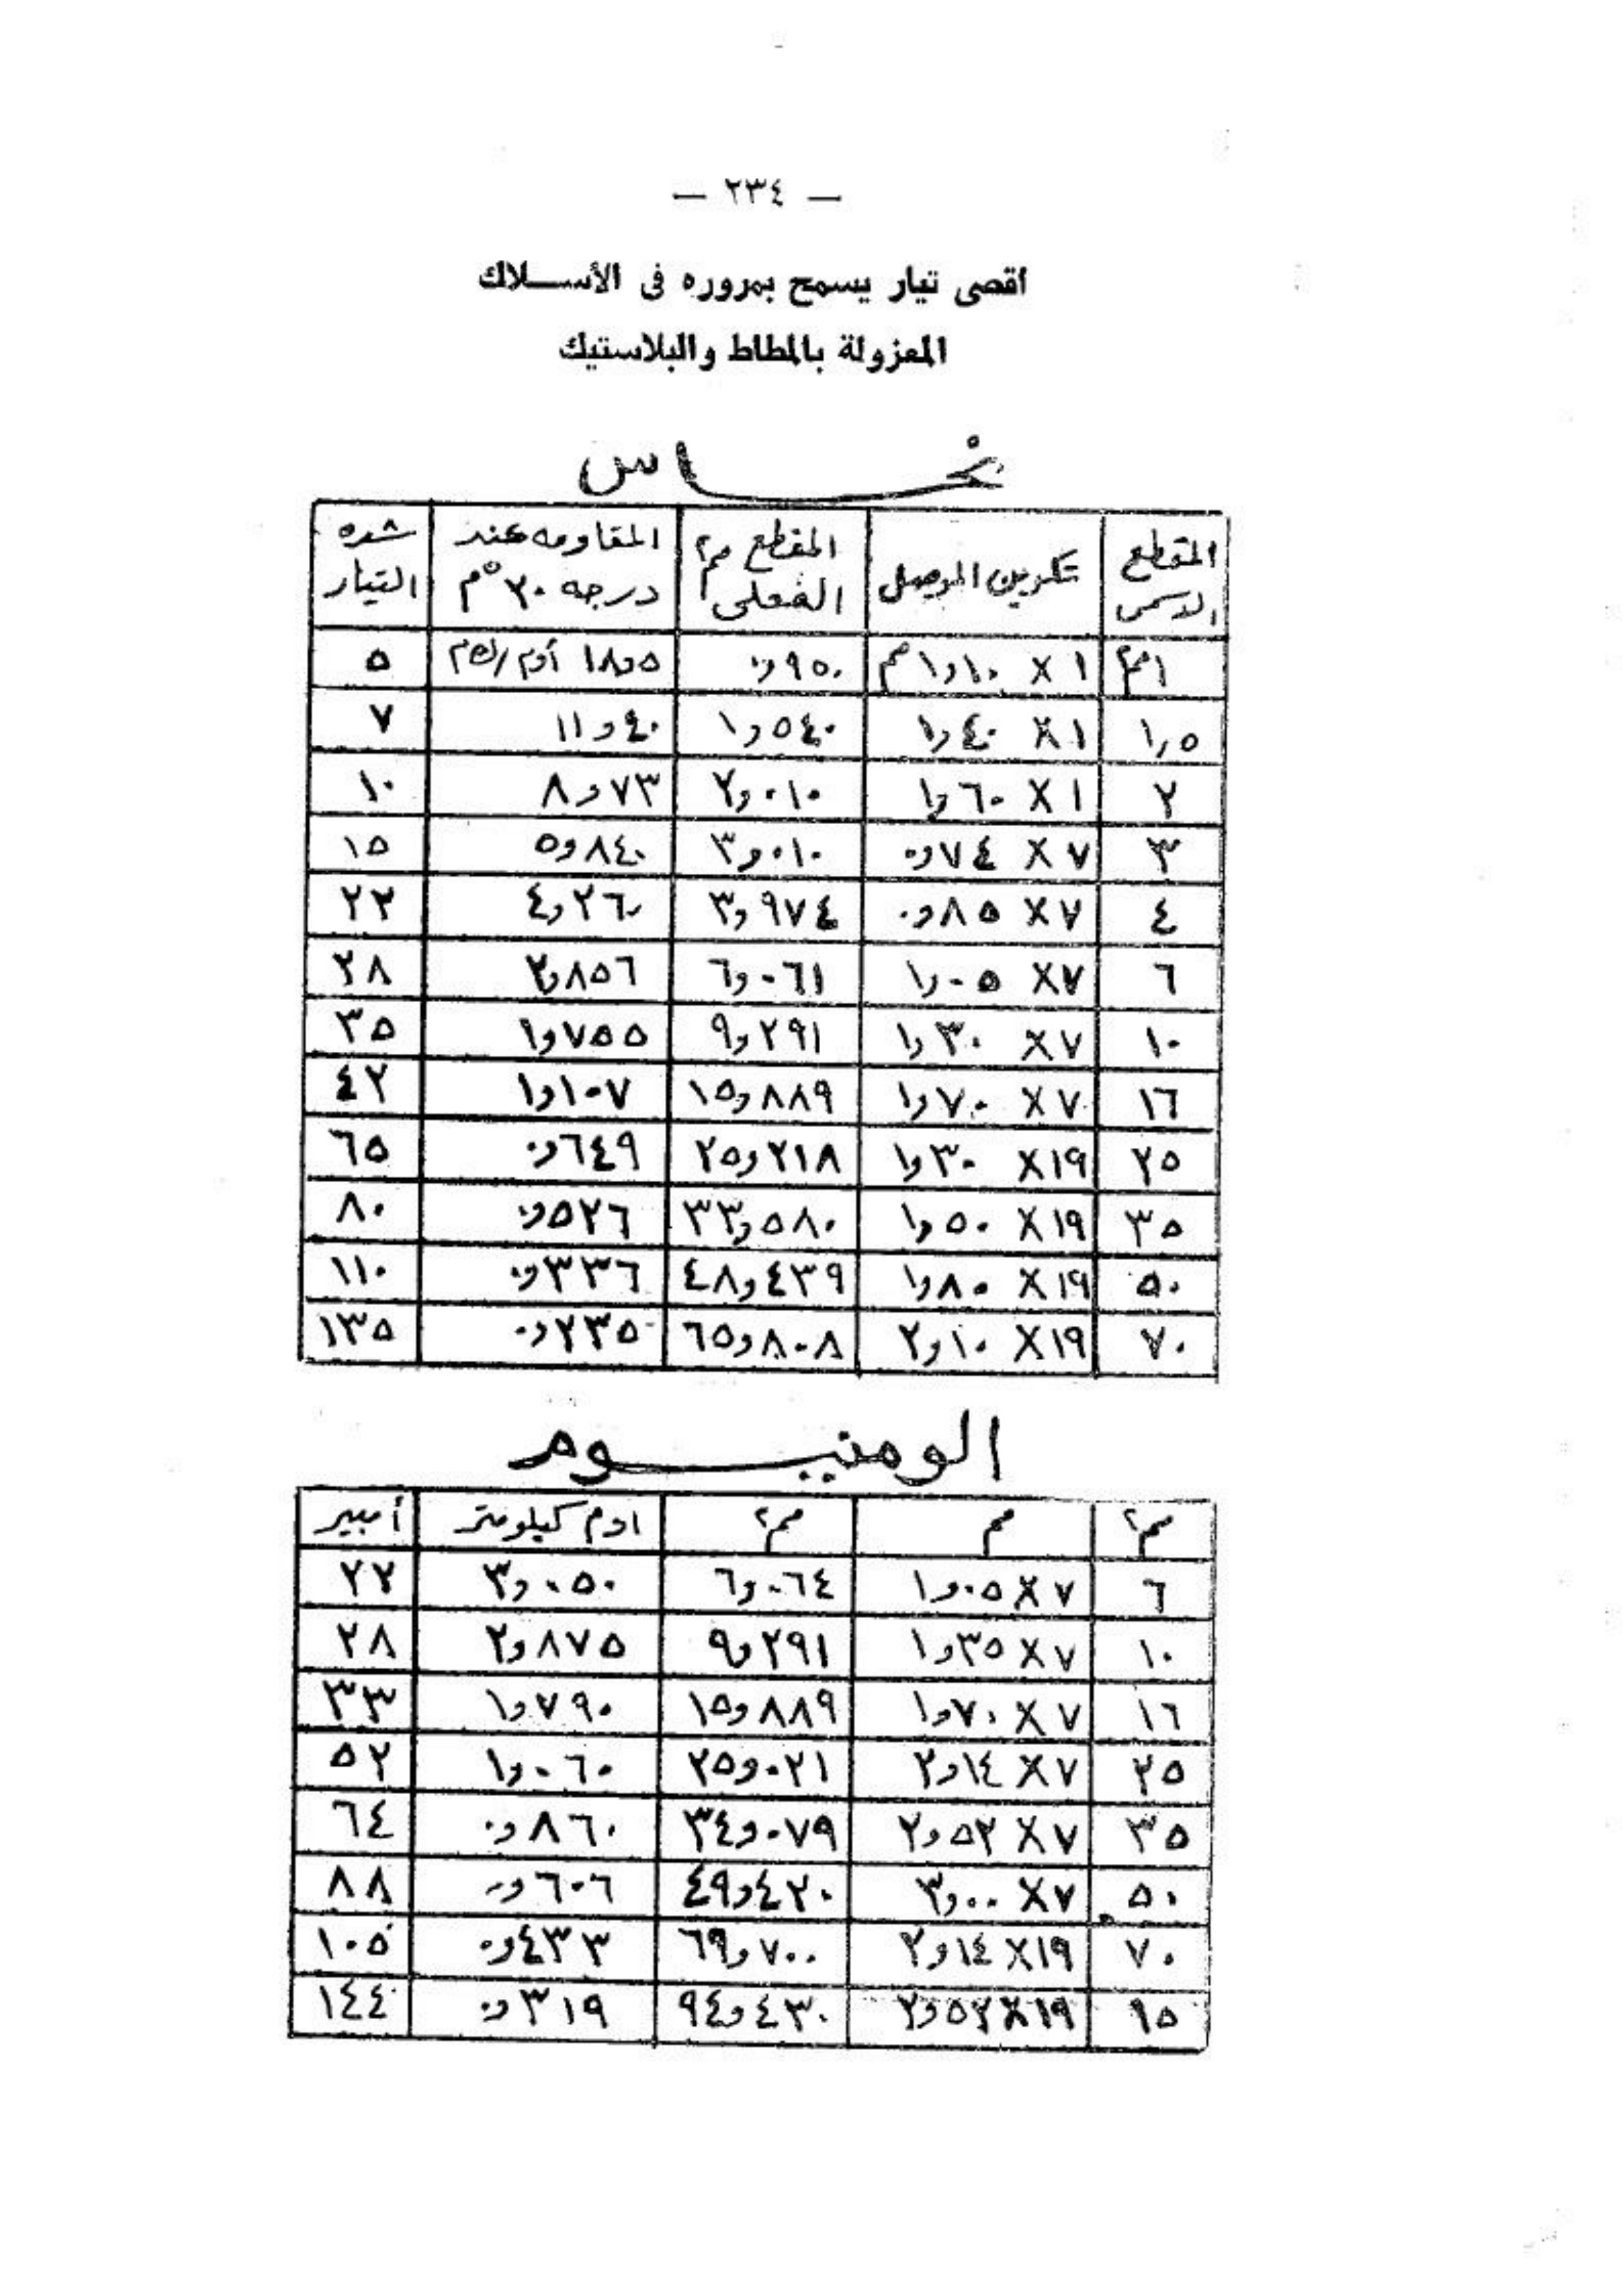 — ٢٣٤ —
اقصى تيار يسمح بمروره فى الأســلاك
المعزولة بالمطاط والبلاستيك
نحـــاس
المقطع الاسمى | تكوين الموصل | المقطع مم٢ الفعلى | المقاومه عند درجه ٢٠°م | شده التيار
١مم٢ | ١ X ١٫١٠ مم | ٠٫٩٥٠ | ١٨٫٥ أوم/كم | ٥
١٫٥ | ١ X ١٫٤٠ | ١٫٥٤٠ | ١١٫٤٠ | ٧
٢ | ١ X ١٫٦٠ | ٢٫٠١٠ | ٨٫٧٣ | ١٠
٣ | ٧ X ٠٫٧٤ | ٣٫٠١٠ | ٥٫٨٤٠ | ١٥
٤ | ٧ X ٠٫٨٥ | ٣٫٩٧٤ | ٤٫٢٦٠ | ٢٢
٦ | ٧ X ١٫٠٥ | ٦٫٠٦١ | ٢٫٨٥٦ | ٢٨
١٠ | ٧ X ١٫٣٠ | ٩٫٢٩١ | ١٫٧٥٥ | ٣٥
١٦ | ٧ X ١٫٧٠ | ١٥٫٨٨٩ | ١٫١٠٧ | ٤٢
٢٥ | ١٩ X ١٫٣٠ | ٢٥٫٢١٨ | ٠٫٦٤٩ | ٦٥
٣٥ | ١٩ X ١٫٥٠ | ٣٣٫٥٨٠ | ٠٫٥٢٦ | ٨٠
٥٠ | ١٩ X ١٫٨٠ | ٤٨٫٤٣٩ | ٠٫٣٣٦ | ١١٠
٧٠ | ١٩ X ٢٫١٠ | ٦٥٫٨٠٨ | ٠٫٢٣٥ | ١٣٥
الومنيـــوم
مم٢ | مم | مم٢ | اوم كيلومتر | أمبير
٦ | ٧ X ١٫٠٥ | ٦٫٠٦٤ | ٣٫٠٥٠ | ٢٢
١٠ | ٧ X ١٫٣٥ | ٩٫٢٩١ | ٢٫٨٧٥ | ٢٨
١٦ | ٧ X ١٫٧٠ | ١٥٫٨٨٩ | ١٫٧٩٠ | ٣٣
٢٥ | ٧ X ٢٫١٤ | ٢٥٫٠٢١ | ١٫٠٦٠ | ٥٢
٣٥ | ٧ X ٢٫٥٢ | ٣٤٫٠٧٩ | ٠٫٨٦٠ | ٦٤
٥٠ | ٧ X ٣٫٠٠ | ٤٩٫٤٢٠ | ٠٫٦٠٦ | ٨٨
٧٠ | ١٩ X ٢٫١٤ | ٦٩٫٧٠٠ | ٠٫٤٣٣ | ١٠٥
٩٥ | ١٩ X ٢٫٥٢ | ٩٤٫٤٣٠ | ٠٫٣١٩ | ١٤٤